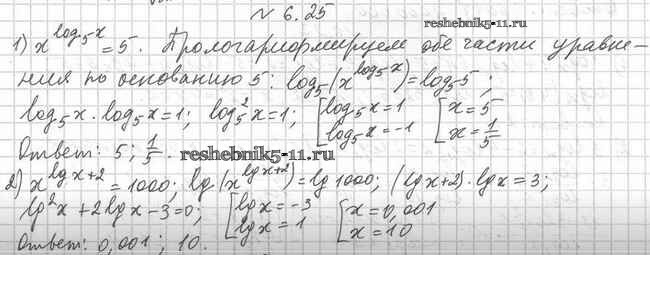 № 6.25
reshebnik5-11.ru
1) x^(log₅x) = 5. Прологарифмируем обе части уравне-
ния по основанию 5: log₅(x^(log₅x)) = log₅5;
log₅x · log₅x = 1; log₅²x = 1; [log₅x = 1 [x = 5
log₅x = -1 x = 1/5
Ответ: 5; 1/5.
reshebnik5-11.ru
2) x^(lgx+2) = 1000; lg(x^(lgx+2)) = lg1000; (lgx+2)·lgx = 3;
lg²x + 2lgx - 3 = 0; [lgx = -3 [x = 0,001
lgx = 1 x = 10
Ответ: 0,001; 10.